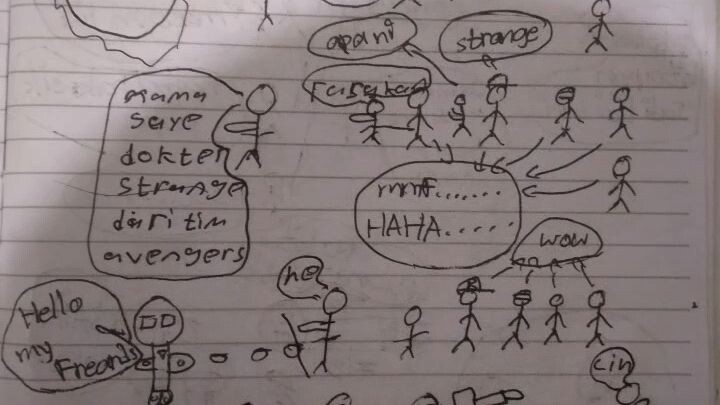 apani
strange
nama
saye
dokter
strange
dari tim
avengers
mmf.......
HAHA.....
wow
he
Hello
my
Freands
cin